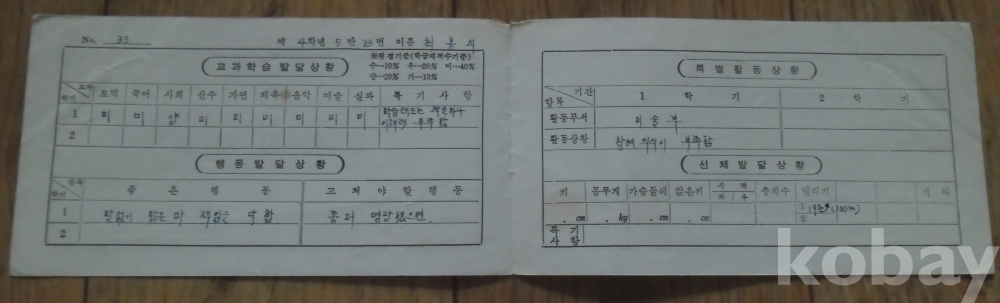 No. 33 제 4학년 5반 33번 이름 최홍석
교과학습발달상황
※평정기준(학급재적수기준)
수…10% 우…20% 미…40%
양…20% 가…10%
교과 도덕 국어 사회 산수 자연 체육 음악 미술 실과 특기사항
학기
1 미 미 양 미 미 미 미 미 미 학습태도는 이해력 부족함
2
행동발달상황
항목 좋은행동 고쳐야할행동
학기
1 말없이 맡은 바 책임을 다함 좀 더 명랑했으면.
2
특별활동상황
기간 1학기 2학기
항목
활동부서 미술부
활동상황 참여 의식이 부족함
신체발달상황
키 몸무게 가슴둘레 앉은키 시력 충치수 달리기 기타
좌 우
. cm . kg . cm . cm ① (100m)
②
특기
사항
kobay